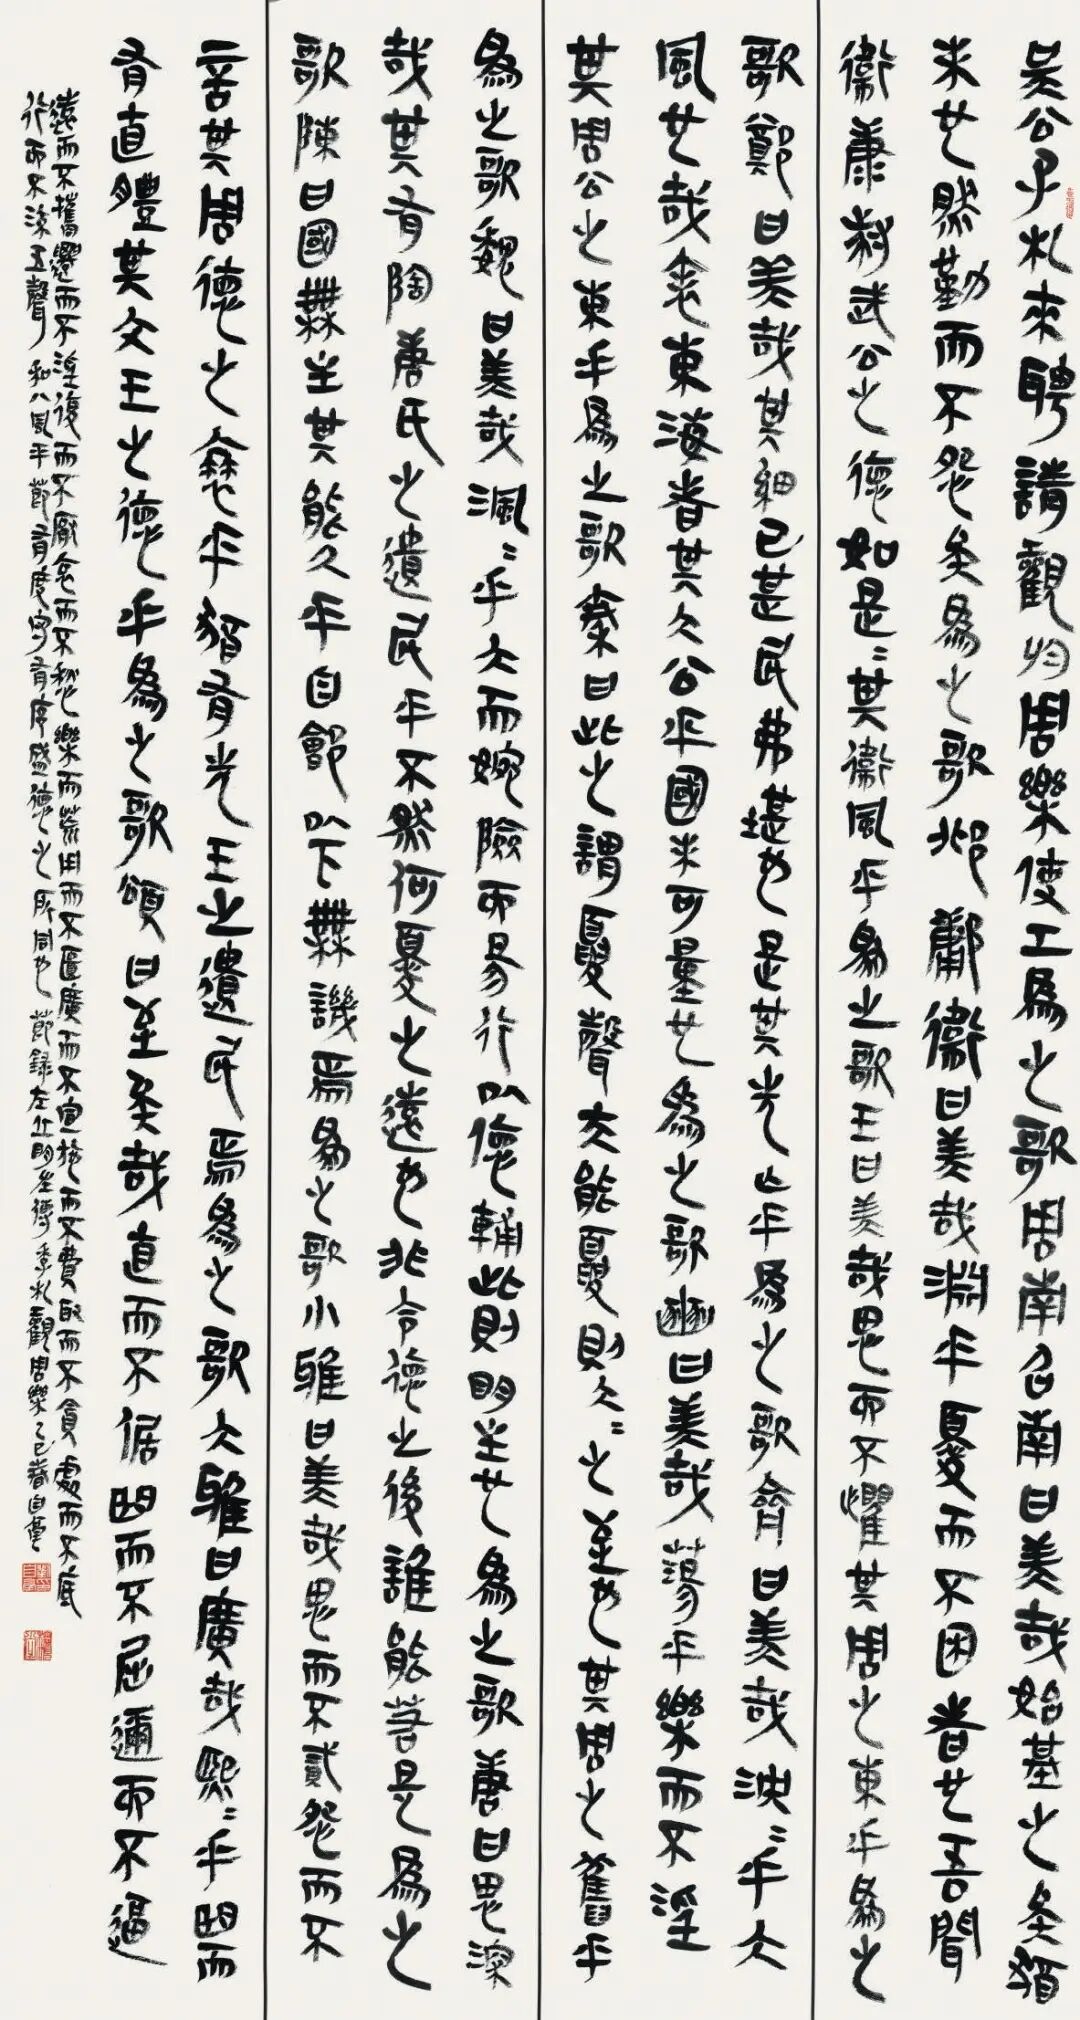 吴公子札來聘請觀於周樂使工為之歌周南召南曰美哉始基之矣猶
未也然勤而不怨矣為之歌邶鄘衛曰美哉淵乎憂而不困者也吾聞
衛康叔武公之德如是是其衛風乎為之歌王曰美哉思而不懼其周之東乎為之
歌鄭曰美哉其細已甚民弗堪也是其先亡乎為之歌齊曰美哉泱泱乎大
風也哉表東海者其大公乎國未可量也為之歌豳曰美哉蕩乎樂而不淫
其周公之東乎為之歌秦曰此之謂夏聲夫能夏則大大之至也其周之舊乎
為之歌魏曰美哉渢渢乎大而婉險而易行以德輔此則明主也為之歌唐曰思深
哉其有陶唐氏之遺民乎不然何憂之遠也非令德之後誰能若是為之
歌陳曰國無主其能久乎自鄶以下無譏焉為之歌小雅曰美哉思而不貳怨而不
言其周德之衰乎猶有先王之遺民焉為之歌大雅曰廣哉熙熙乎曲而
有直體其文王之德乎為之歌頌曰至矣哉直而不倨曲而不屈邇而不逼
遠而不攜遷而不淫復而不厭哀而不愁樂而荒用而不匱廣而不宣施而不費取而不貪處而不底
行而不流五聲和八風平節有度守有序盛德之所同也 節錄左丘明左傳季札觀周樂乙巳春自